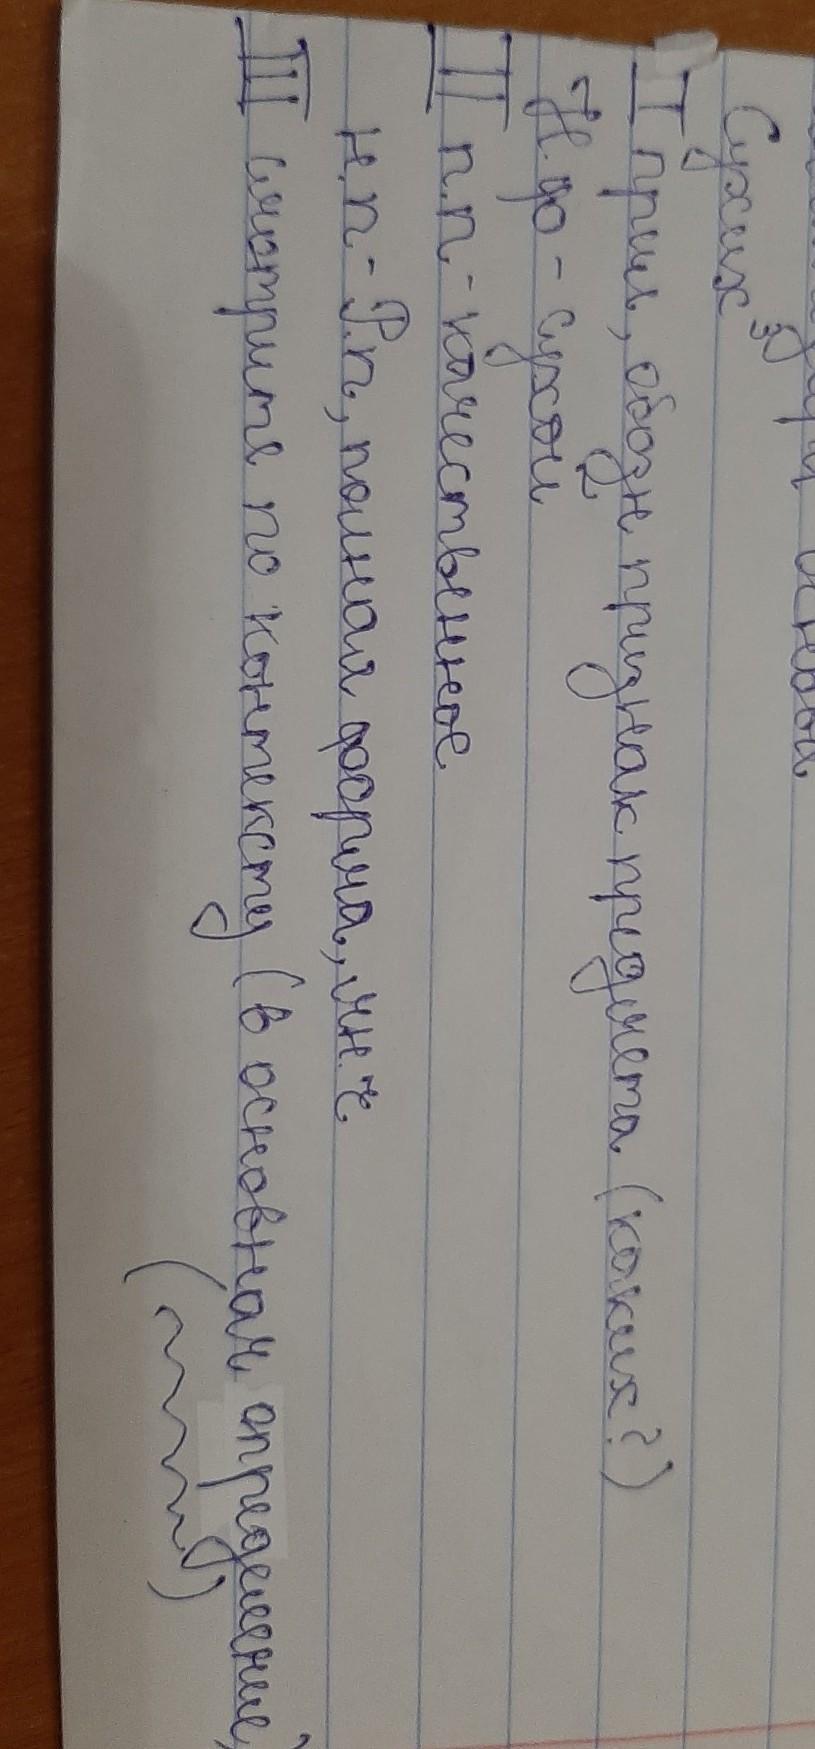 Сухих³
I прил, обозн признак предмета (каких?)
Н.ф - сухой
II п.п - качественное
н.п - Р.п, полная форма, мн.ч
III смотрите по контексту (в основном определение,